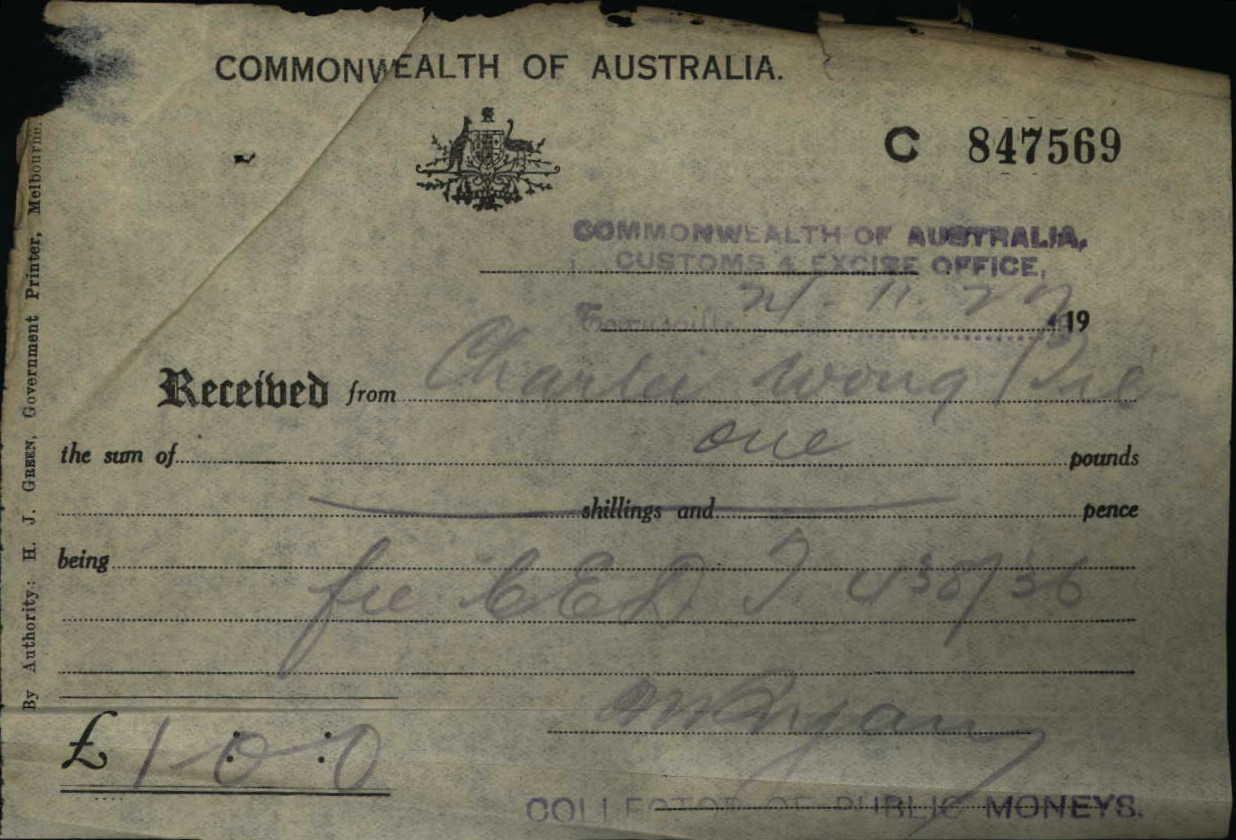 COMMONWEALTH OF AUSTRALIA.
C 847569
COMMONWEALTH OF AUSTRALIA,
CUSTOMS & EXCISE OFFICE,
Townsville 21. 11. 27 19
Received from Charlie Wong
the sum of one pounds
shillings and pence
being
fee CEDT 438/36
Ryan
£ 1 : 0 : 0
COLLECTOR OF PUBLIC MONEYS.
By Authority: H. J. GREEN, Government Printer, Melbourne.